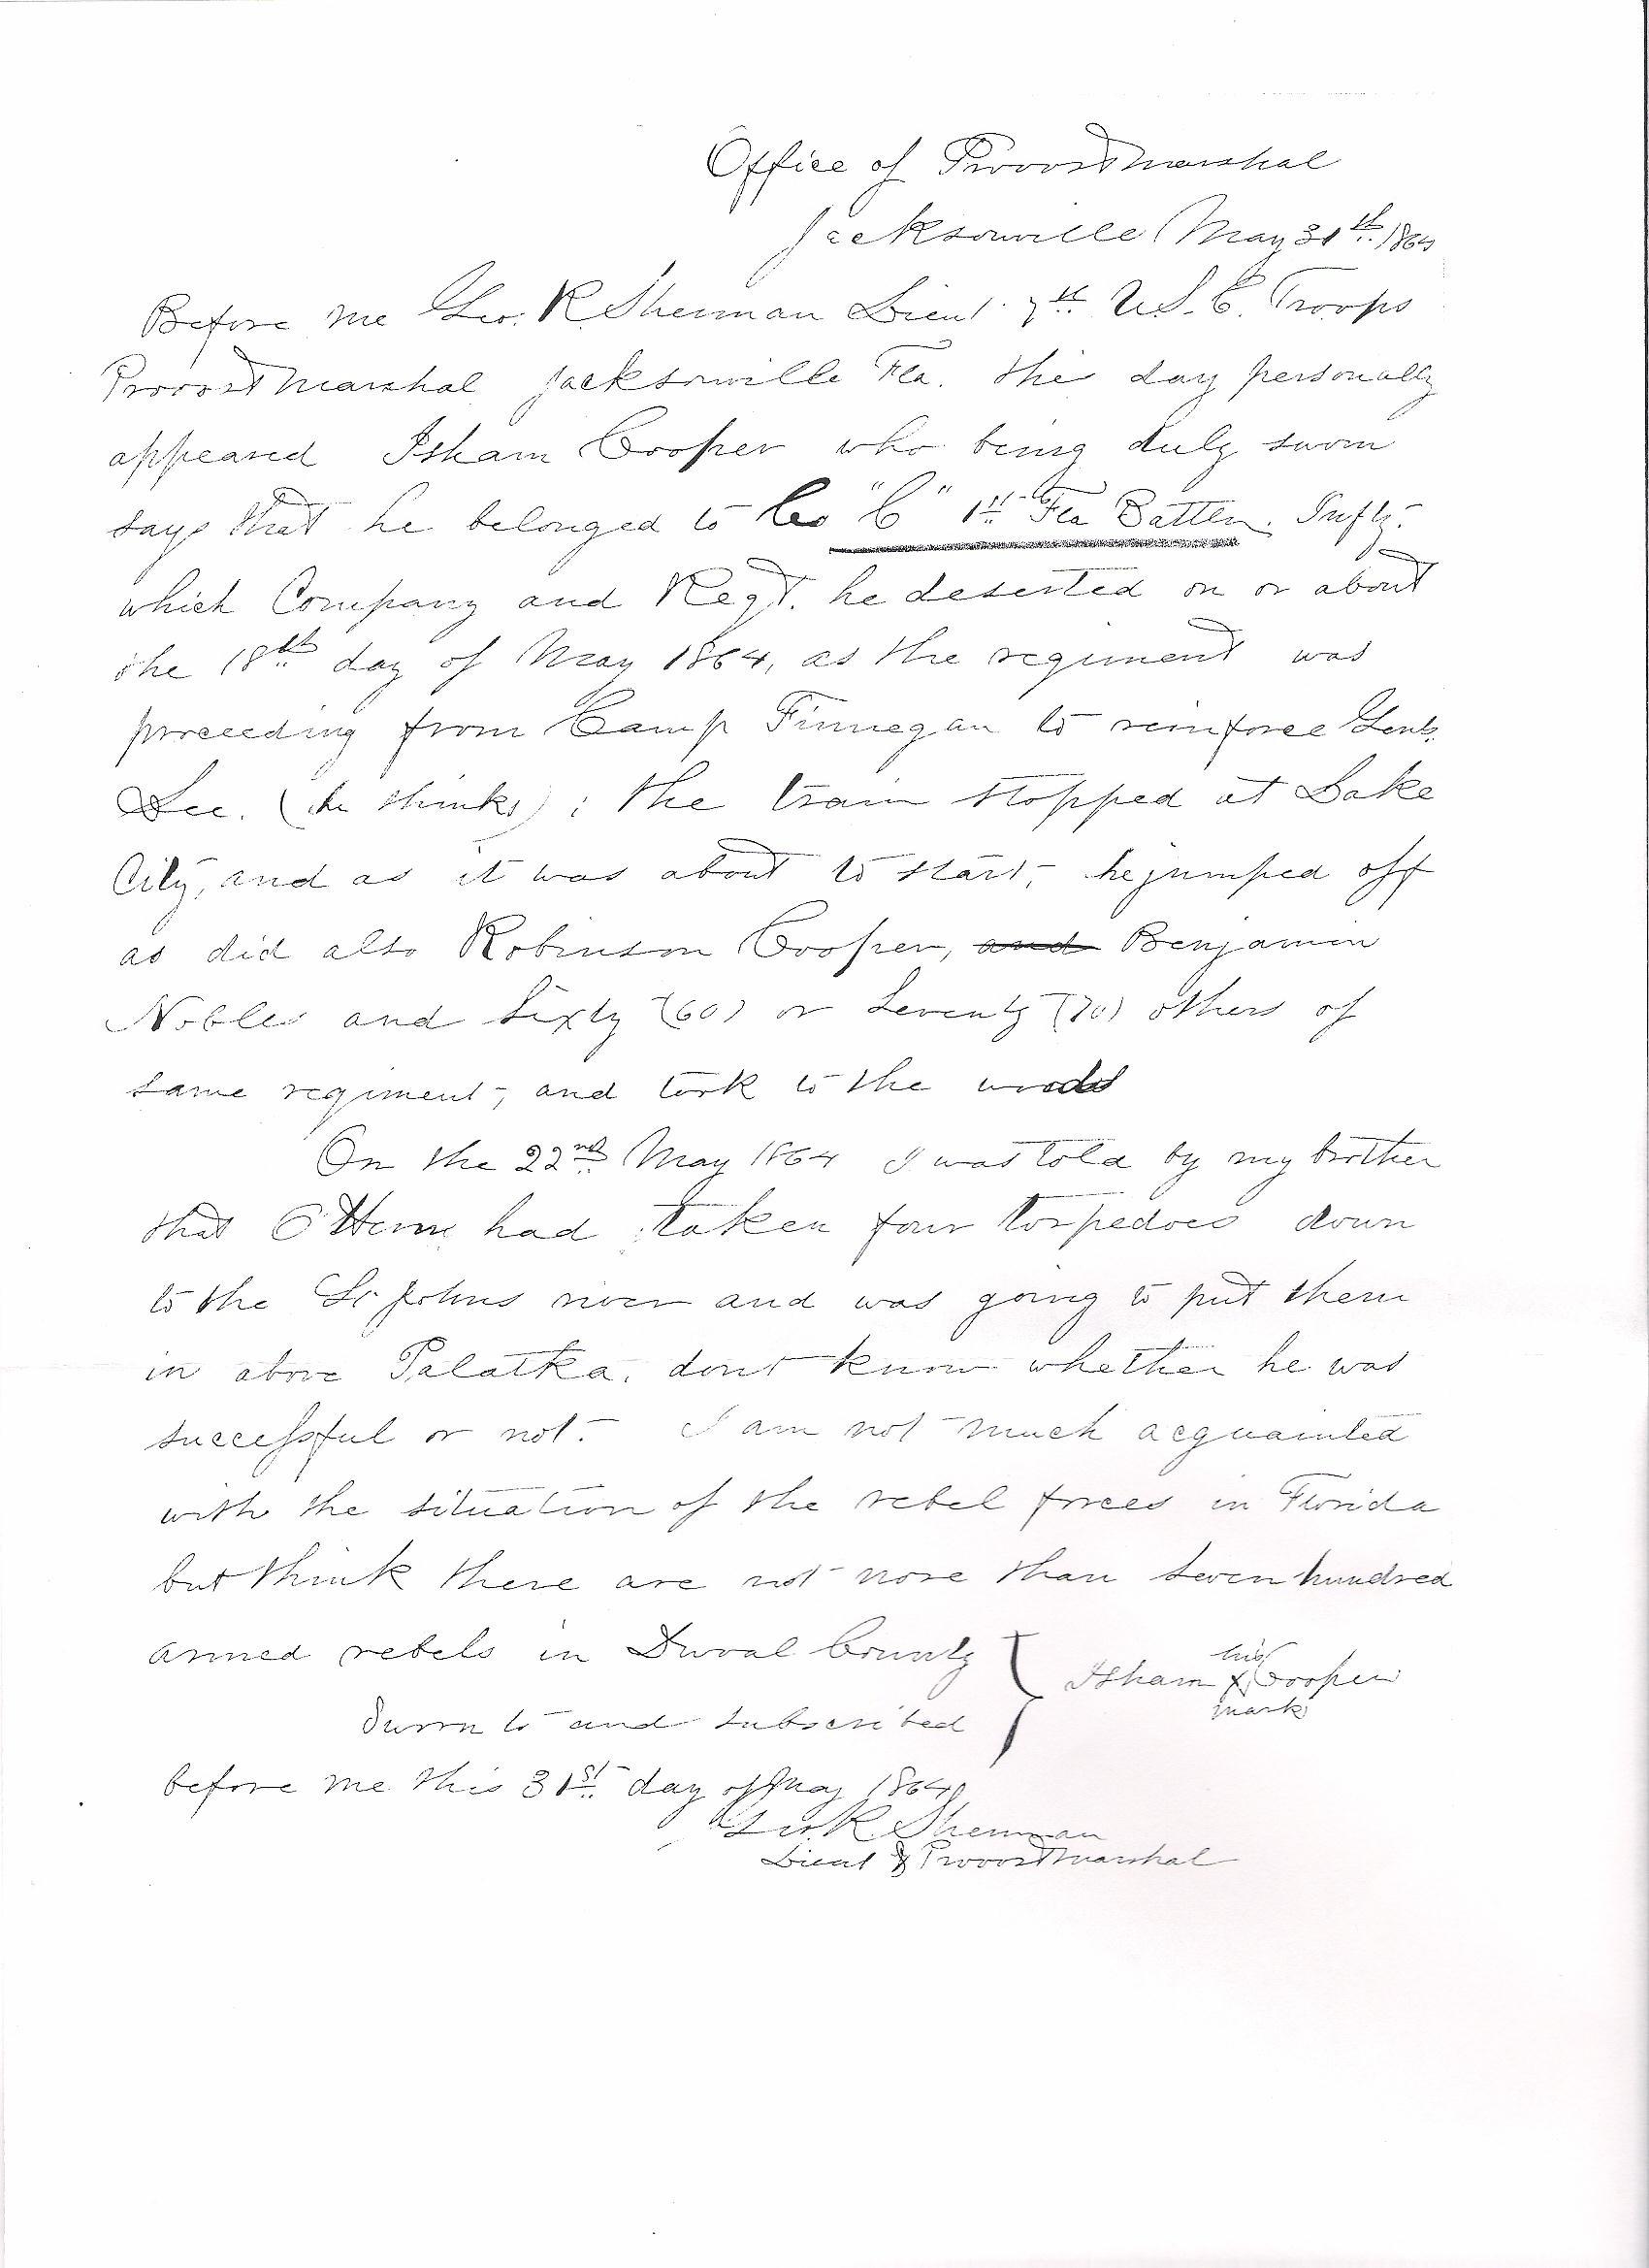 Office of Provost Marshal
Jacksonville May 31th. 1864
Before me Geo. R. Sherman Lieut. 7th U.S.C. Troops
Provost Marshal Jacksonville Fla. this day personally
appeared Isham Cooper who being duly sworn
says that he belonged to Co "C" 1st Fla Battln. Infty.
which Company and Regt. he deserted on or about
the 18th day of May 1864, as the regiment was
proceeding from Camp Finnegan to reinforce Genl.
Lee. (he thinks); the train stopped at Lake
City, and as it was about to start, he jumped off
as did also Robinson Cooper, and Benjamin
Nobles and Sixty (60) or Seventy (70) others of
same regiment, and took to the woods
On the 22nd May 1864 I was told by my brother
that had taken four torpedoes down
to the St Johns river and was going to put them
in above Palatka. dont know whether he was
successful or not. I am not much acquainted
with the situation of the rebel forces in Florida
but think there are not more than seven hundred
armed rebels in Duval County
Isham his x mark Cooper
Sworn to and subscribed
before me this 31st. day of May 1864
Geo. R. Sherman
Lieut & Provost Marshal